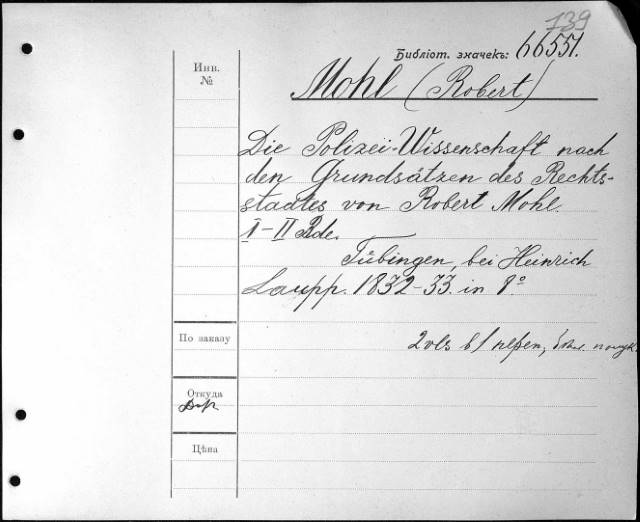 739
Библіот. значекъ: 66551.
Инв.
№
Mohl (Robert)
Die Polizei-Wissenschaft nach
den Grundsätzen des Rechts-
staates von Robert Mohl.
I-II Bde.
Tübingen, bei Heinrich
Laupp. 1832-33. in 8°
По заказу
2 vls в 1 переп,
Откуда
Цѣна